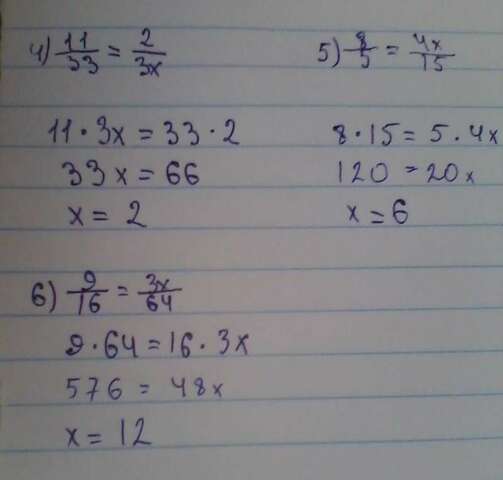 4) 11/33 = 2/3x
11 · 3x = 33 · 2
33x = 66
x = 2
5) 8/5 = 4x/15
8 · 15 = 5 · 4x
120 = 20x
x = 6
6) 9/16 = 3x/64
9 · 64 = 16 · 3x
576 = 48x
x = 12